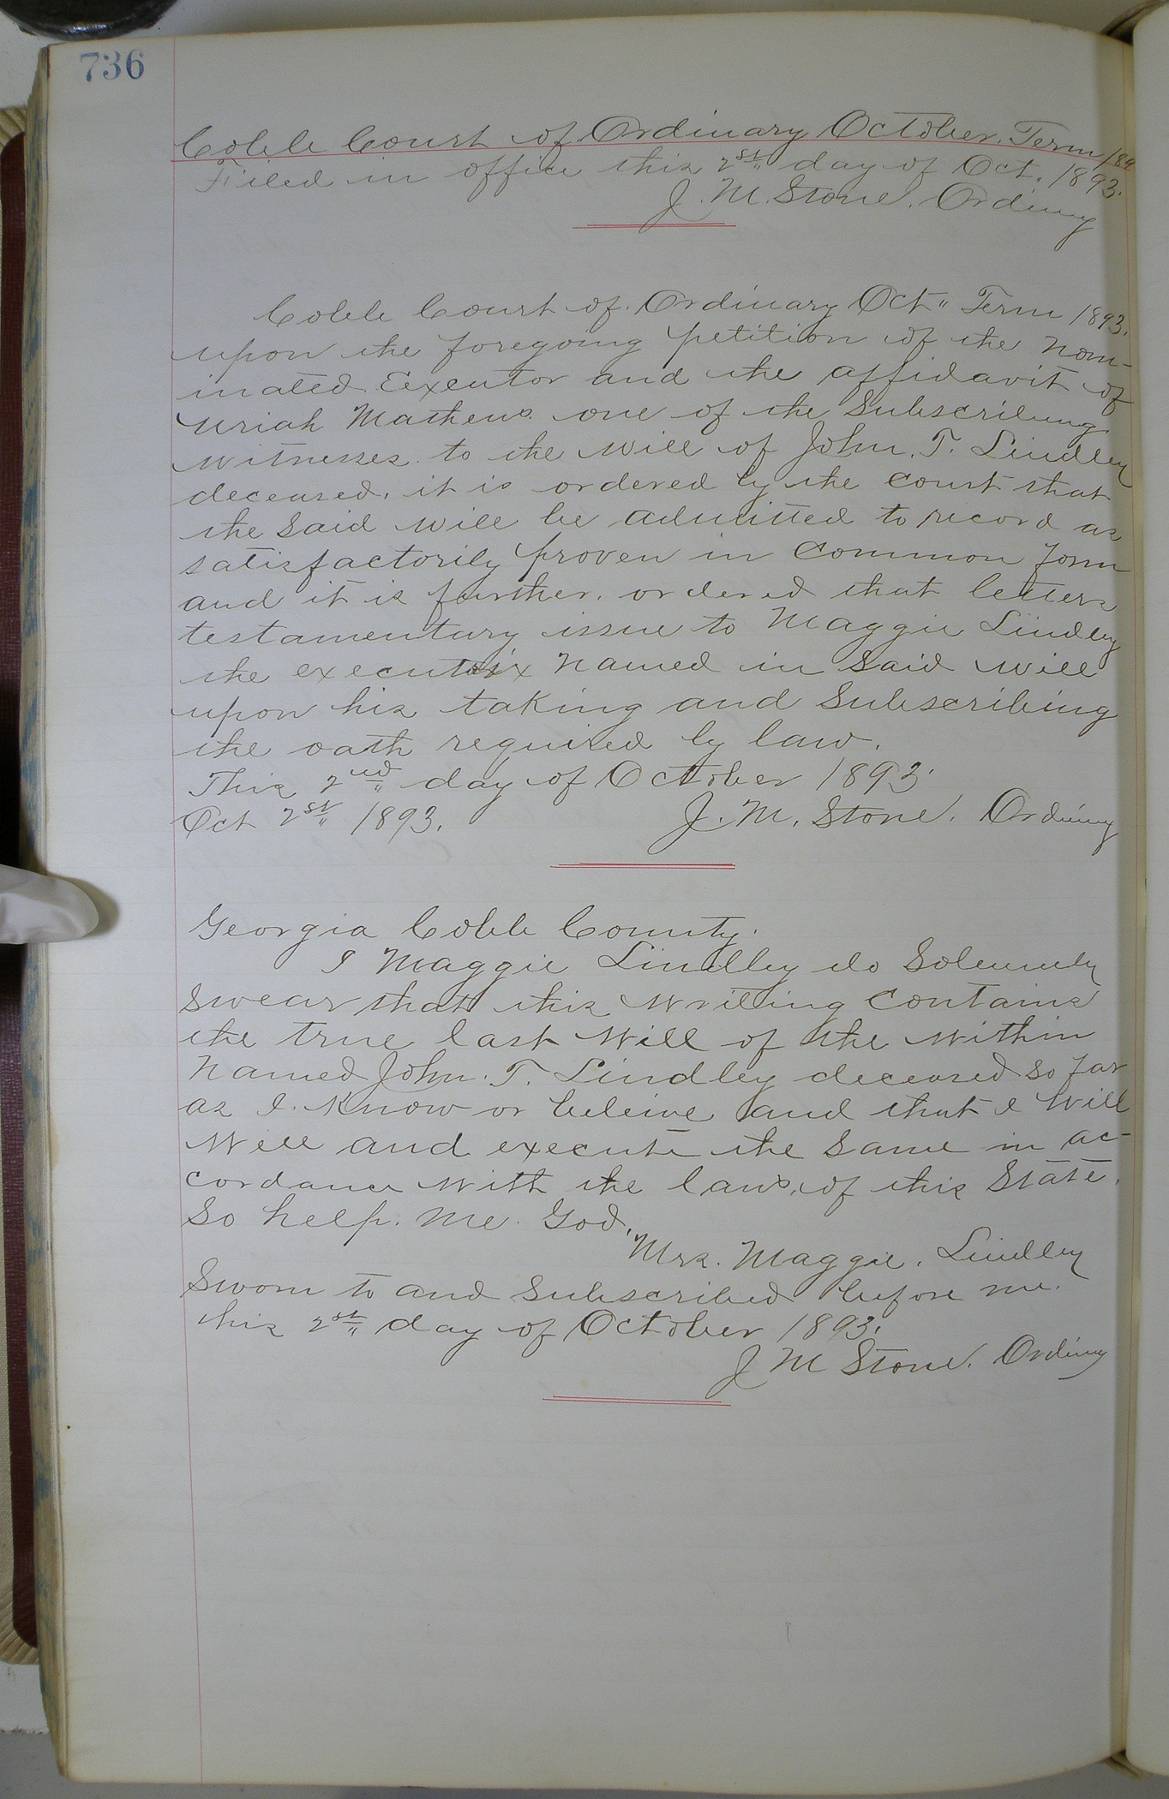 736
Cobb Court of Ordinary October Term 189
Filed in office this 2st day of Oct. 1893.
J. M. Stone. Ordinry
Cobb Court of Ordinary Oct" Term 1893.
upon the foregoing petition of the nom-
inated Eexeutor and the affidavit of
Uriah Mathews one of the Subscribing
witnesses to the will of John. T. Lindley
deceased. it is ordered by the Court that
the said will be admitted to record as
satisfactorily proven in Common form
and it is further. ordered that letters
testamentary issue to Maggie Lindley
the executrix named in said will
upon his taking and Subscribing
the oath required by law.
This 2nd day of October 1893.
Oct 2st 1893.
J. M. Stone. Ordinry
Georgia Cobb County.
I Maggie Lindley do Solemnly
swear that this writing Contains
the true last Will of the within
named John. T. Lindley deceased so far
as I. Know or beleive and that I will
Well and execute the same in ac-
cordance with the laws. of this State.
So help. me God.
Mrs. Maggie. Lindley
Sworn to and Subscribed before me.
this 2st day of October 1893.
J M Stone. Ordiny